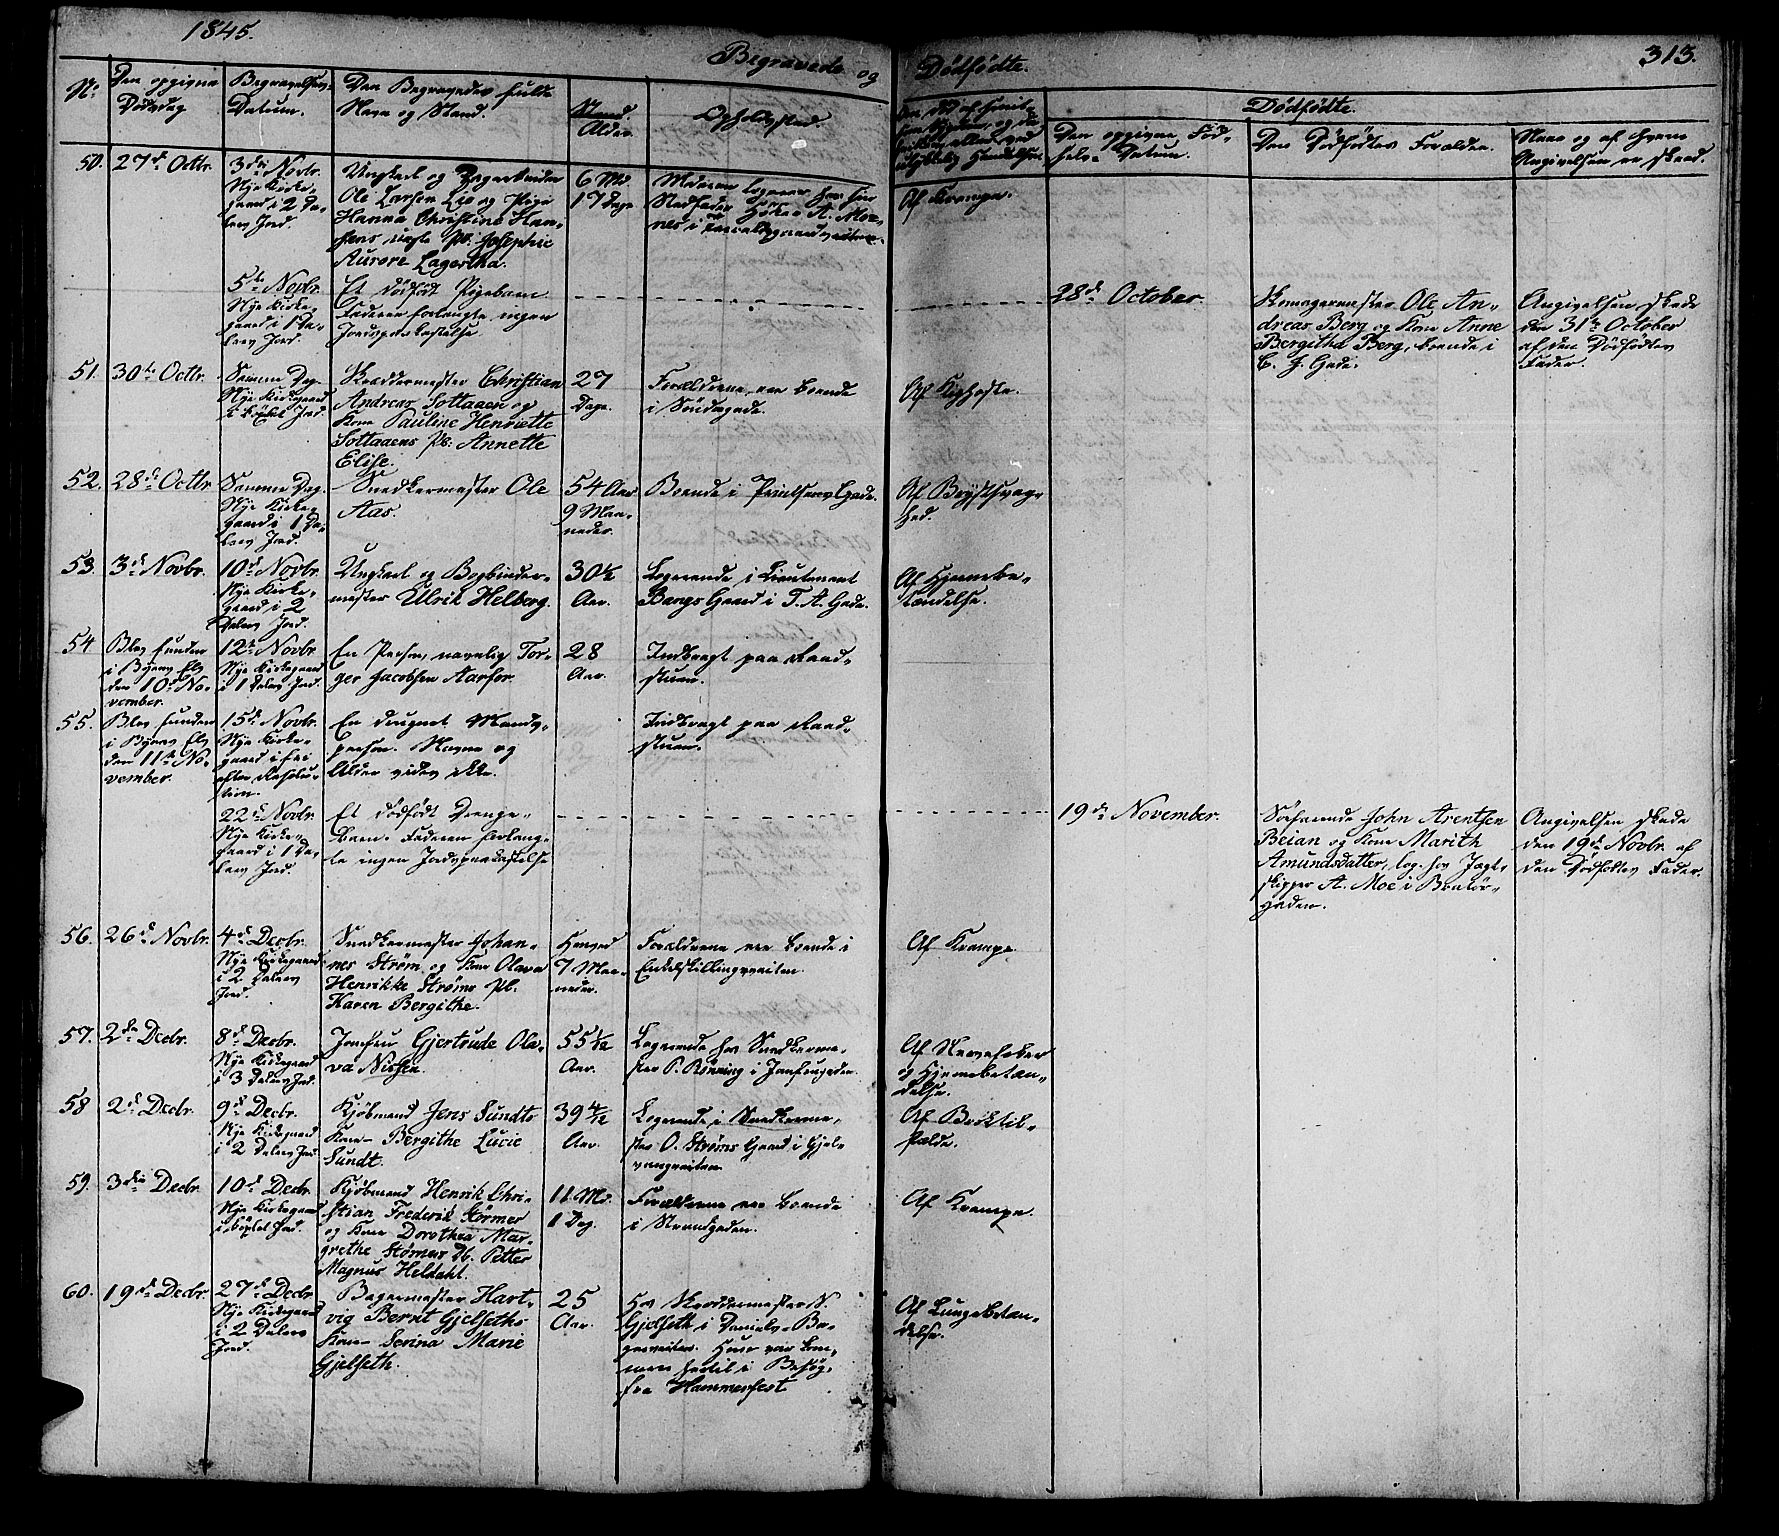 1845.
313.
Begravede og Dødfødte.
No
Den opgivne Dødsdag
Begravelsens Datum.
Den Begravedes fulde Navn og Stand.
Stand. Alder.
Opholdssted.
Dødfødte.
Den opgivne Fødsels-Datum.
Den Dødfødtes Forældre.
Naar og af hvem Angivelsen er skeed.
50. 27de Octbr.
3die Novbr.
Nye Kirke-
gaard i 2 Da-
lers Jord.
Ungkarl og
Ole Larsen Lie og Pige
Hanna Christine Han-
sens uægte Pb. Josephie
Aurore Lagertha.
6 Md
17 Dage
Moderen logerer hos
Høker A. Moe-
Af Krampe.
5te Novbr.
Nye Kirke-
gaard i 1 Da-
lers Jord.
Et dødfødt Pigebarn
Faderen forlangte ingen
Jordspaakastelse
28de October.
Skomagermester Ole An-
dreas Berg og Kone Anne
Bergitha Berg, boende i
C. J. Gade.
Angivelsen skede
den 31te October
af den Dødfødtes
Fader.
51. 30te Octbr.
Samme Dag.
Nye Kirkegaard
i kjøbt Jord.
Skræddermester Christian
Andreas Sottaaen og
Kone Pauline Henriette
Sottaaens Pb: Annette
Elise.
27
Dage.
Forældrene ere boende
i Søndregade.
Af Kighoste.
52. 28de Octbr
Samme Dag.
Nye Kirke-
gaard i 1 Da-
lers Jord.
Snedkermester Ole
Aas.
54 Aar
9 Maa-
neder.
Boende i Prindsens Gade.
Af Brystsvag-
hed.
53. 3de Novbr.
10de Novbr.
Nye Kirke-
gaard i 2
Dalers Jord.
Ungkarl og Bogbinder-
mester Ulrik Helberg.
30½
Aar.
Logerende i Lieutenant
Bangs Gaard i T. A. Gade.
Af Hjernebe-
tændelse.
54
Blev funden
i Byens Elv
den 10de No-
vember.
12te Novbr
Nye Kirkegaard
i 1 Dalers Jord.
En Person, navnlig Tor-
ger Jacobsen Aarfor.
28
Aar.
Indbragt paa Raad-
stuen.
55.
Blev funden
i Byens Elv
den 11te No-
vember.
15de Novbr.
Nye Kirke-
gaard i fri
efter Resolu-
tion.
En druknet Mands-
person. Navn og
Alder vides ikke.
Indbragt paa Raad-
stuen.
22de Novbr.
Nye Kirke-
gaard i 1 Da-
lers Jord.
Et dødfødt Drenge-
barn. Faderen forlang-
te ingen Jordspaakastelse
19de November.
Søfarende John Arentsen
Beian og Kone Marith
Amundsdatter, log. hos Jagt-
skipper A. Moe i
gaden.
Angivelsen skede
den 19de Novbr. af
den Dødfødtes Fader.
56. 26de Novbr.
4de Decbr.
Nye Kirkegaard
i 2 Dalers
Jord.
Snedkermester Johan-
nes Strøm og Kone Olava
Henrikke Strøms Pb.
Karen Bergithe.
7 Maa-
neder.
Forældrene ere boende i
Enkeltskillingsveiten.
Af Krampe
57. 2den Decbr.
8de Decbr.
Nye Kirkegaard
i 3 Dalers Jord.
Jomfru Gjertrude Ola-
va Nissen.
Aar.
Logerende hos Snedkerme-
ster P. Rønning i Jomfrugaden
Af Nervefeber
og Hjernebetæn-
delse.
58 2de Decbr.
9de Decbr.
Nye Kirkegaard
i 2 Dalers Jord
Kjøbmand Jens Sundts
Kone- Bergithe Lucie
Sundt.
39 4/12
Aar.
Logerende i Snedkerme-
ster O. Strøms Gaard i Gjel-
vangveiten
59. 3die Decbr.
10de Decbr
Nye Kirkegaard
i kjøbt Jord.
Kjøbmand Henrik Chri-
stian Frederik Størmer
og Kone Dorothea Mar-
grethe Størmers Db. Petter
Magnus Heldahl.
11 Md.
1 Dag.
Forældrene ere boende
i Strandgaden.
Af Krampe.
60. 19de Decbr.
27de Decbr
Nye Kirkegaard
i 2 Dalers
Jord.
Bagermester Hart-
vig Bernt Gjelseths
Kone- Serina Marie
Gjelseth.
25
Aar.
Hos Skræddermester N.
Gjelseth i Daniels-Ba-
gerveiten. Hun var kom-
men hertil i Besøg
fra Hammerfest
Af Lungebetæn-
delse.